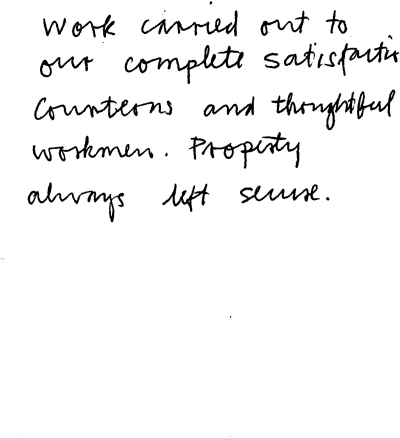 Work carried out to
our complete satisfactio
Courteous and thoughtful
workmen. Property
always left secure.